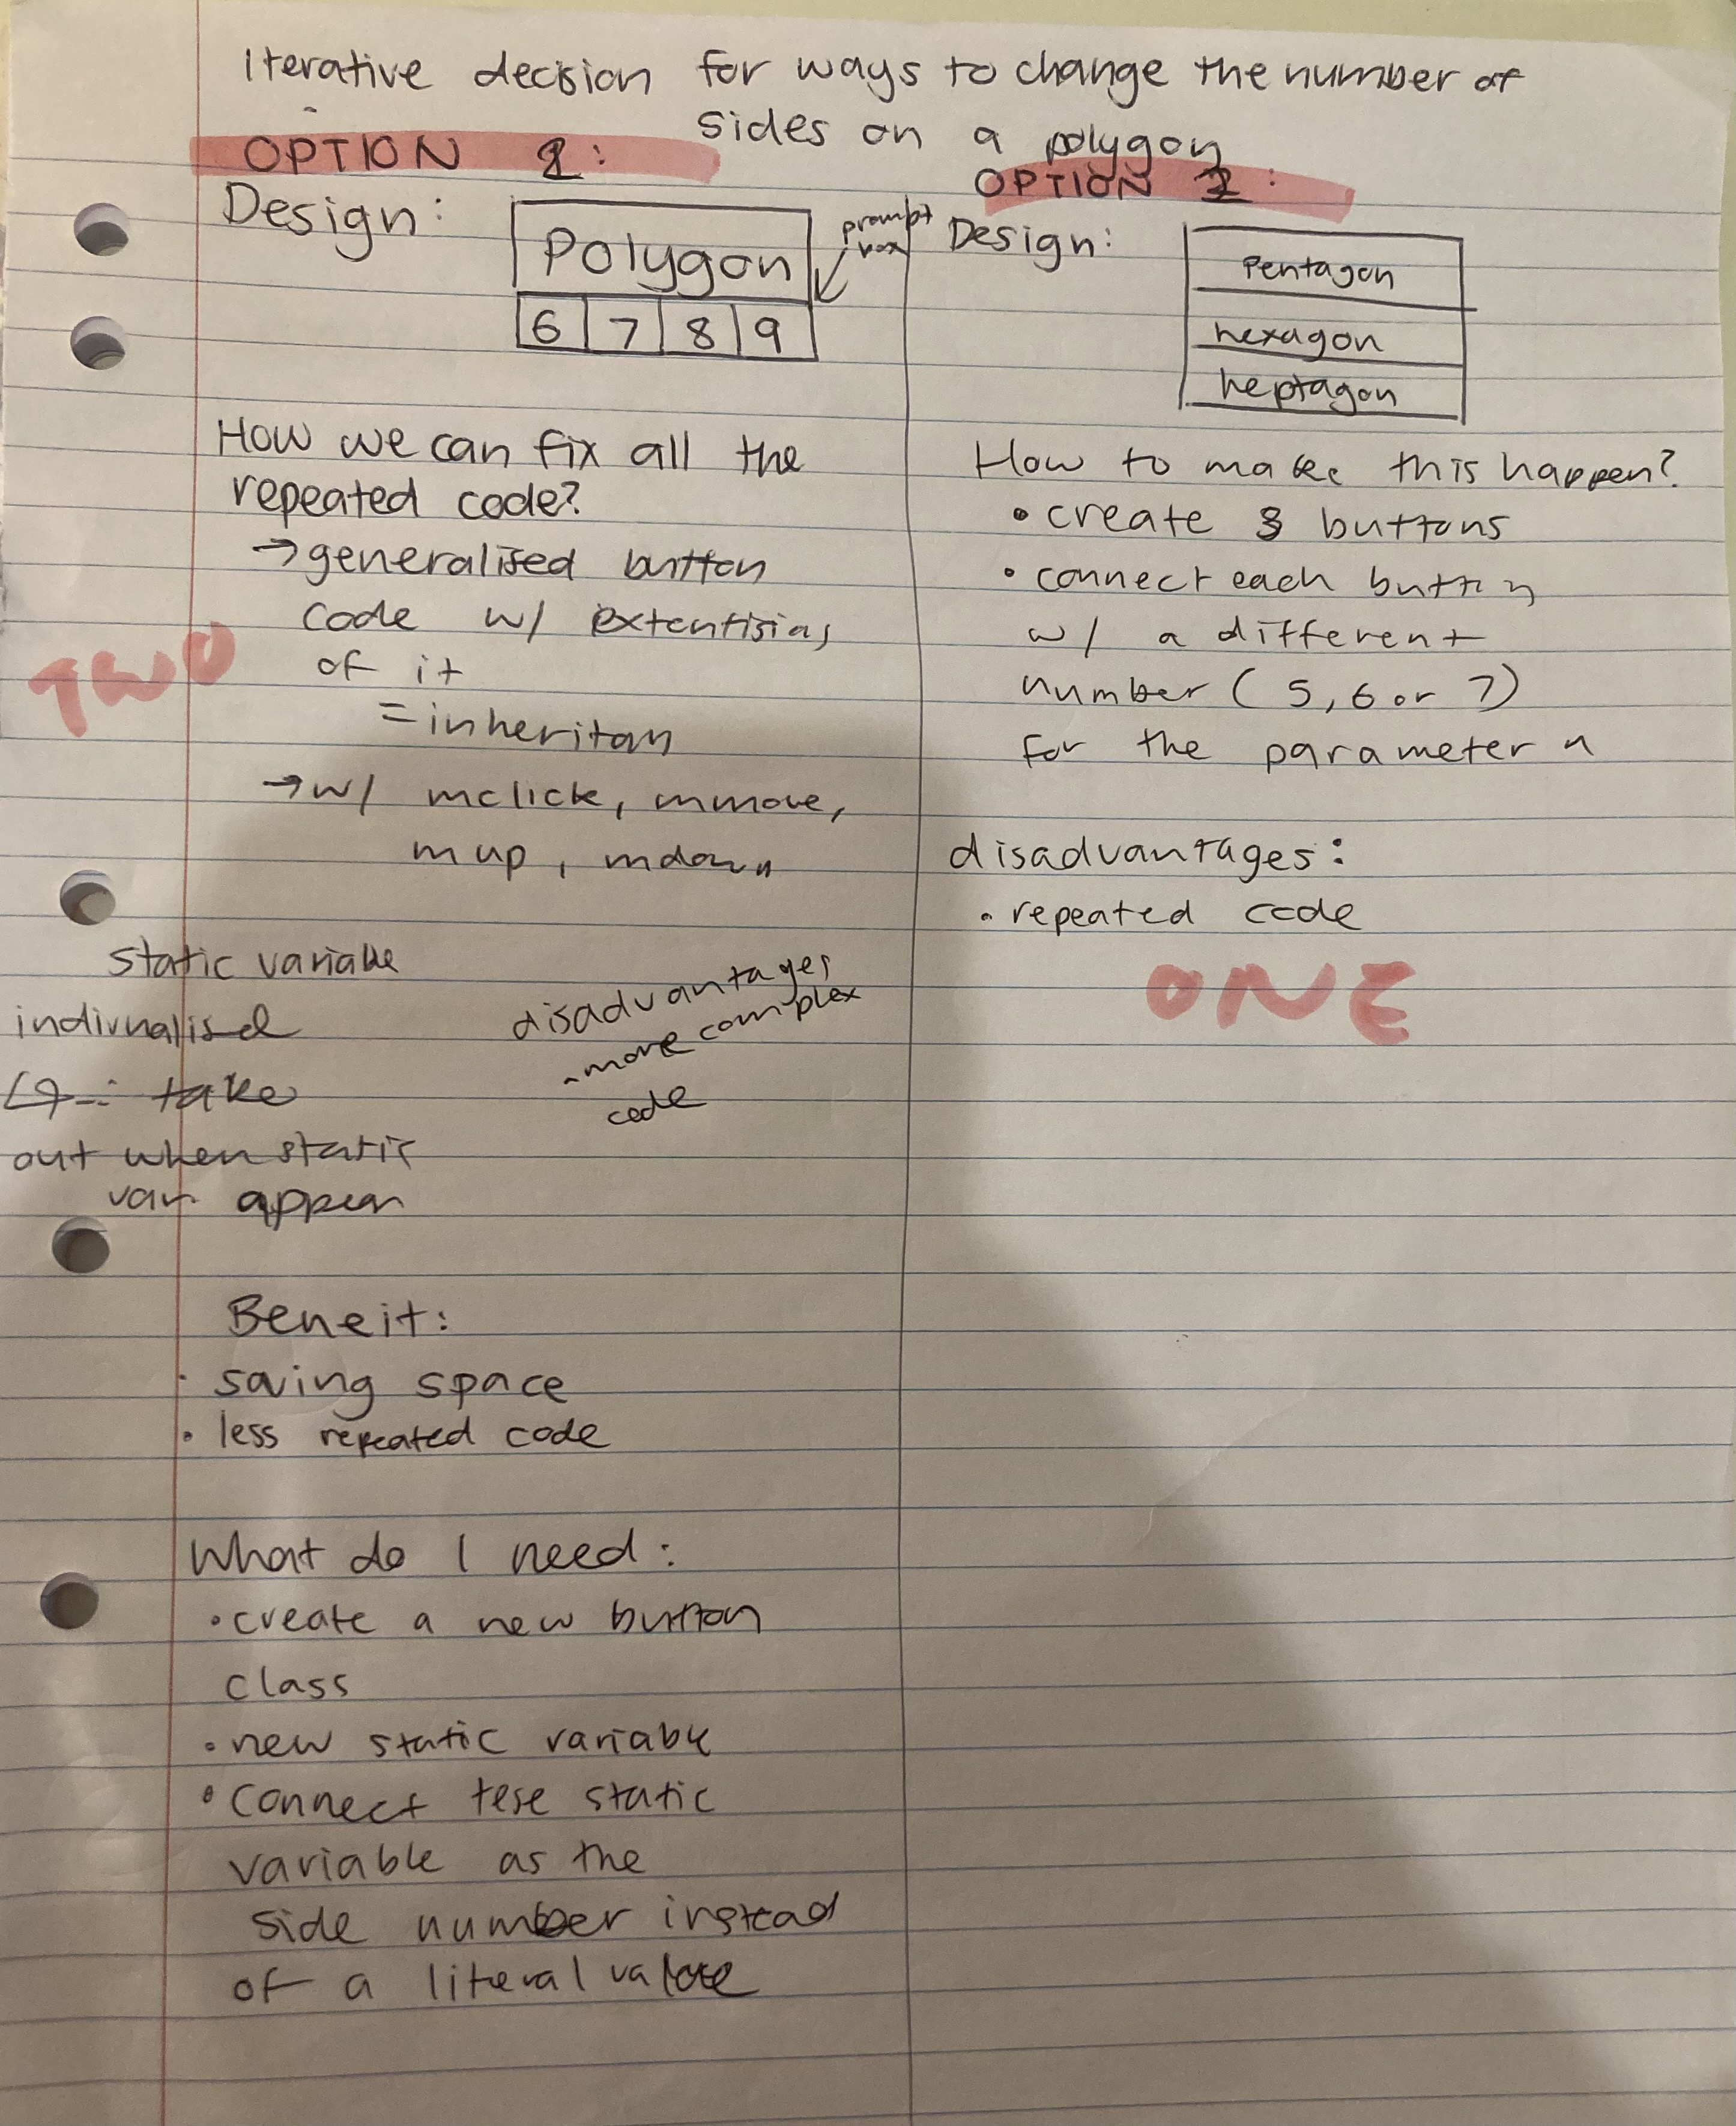 Iterative decision for ways to change the number of
sides on a polygon
OPTION 2:
Design:
Polygon
prompt
box
6 7 8 9
How we can fix all the
repeated code?
→ generalised button
code w/
of it
= inheritan
→ w/ mclick, mmove,
mup, mdown
TWO
static variable
disadvantages
- more complex
code
take
out when static
var appear
Beneit:
· saving space
· less repeated code
What do I need:
· create a new button
class
· new static variable
· connect tese static
variable as the
side number instead
of a literal value
OPTION 1:
Design:
Pentagon
hexagon
heptagon
How to make this happen?
· create 3 buttons
· connect each button
w/ a different
number (5, 6 or 7)
for the parameter n
disadvantages:
· repeated code
ONE